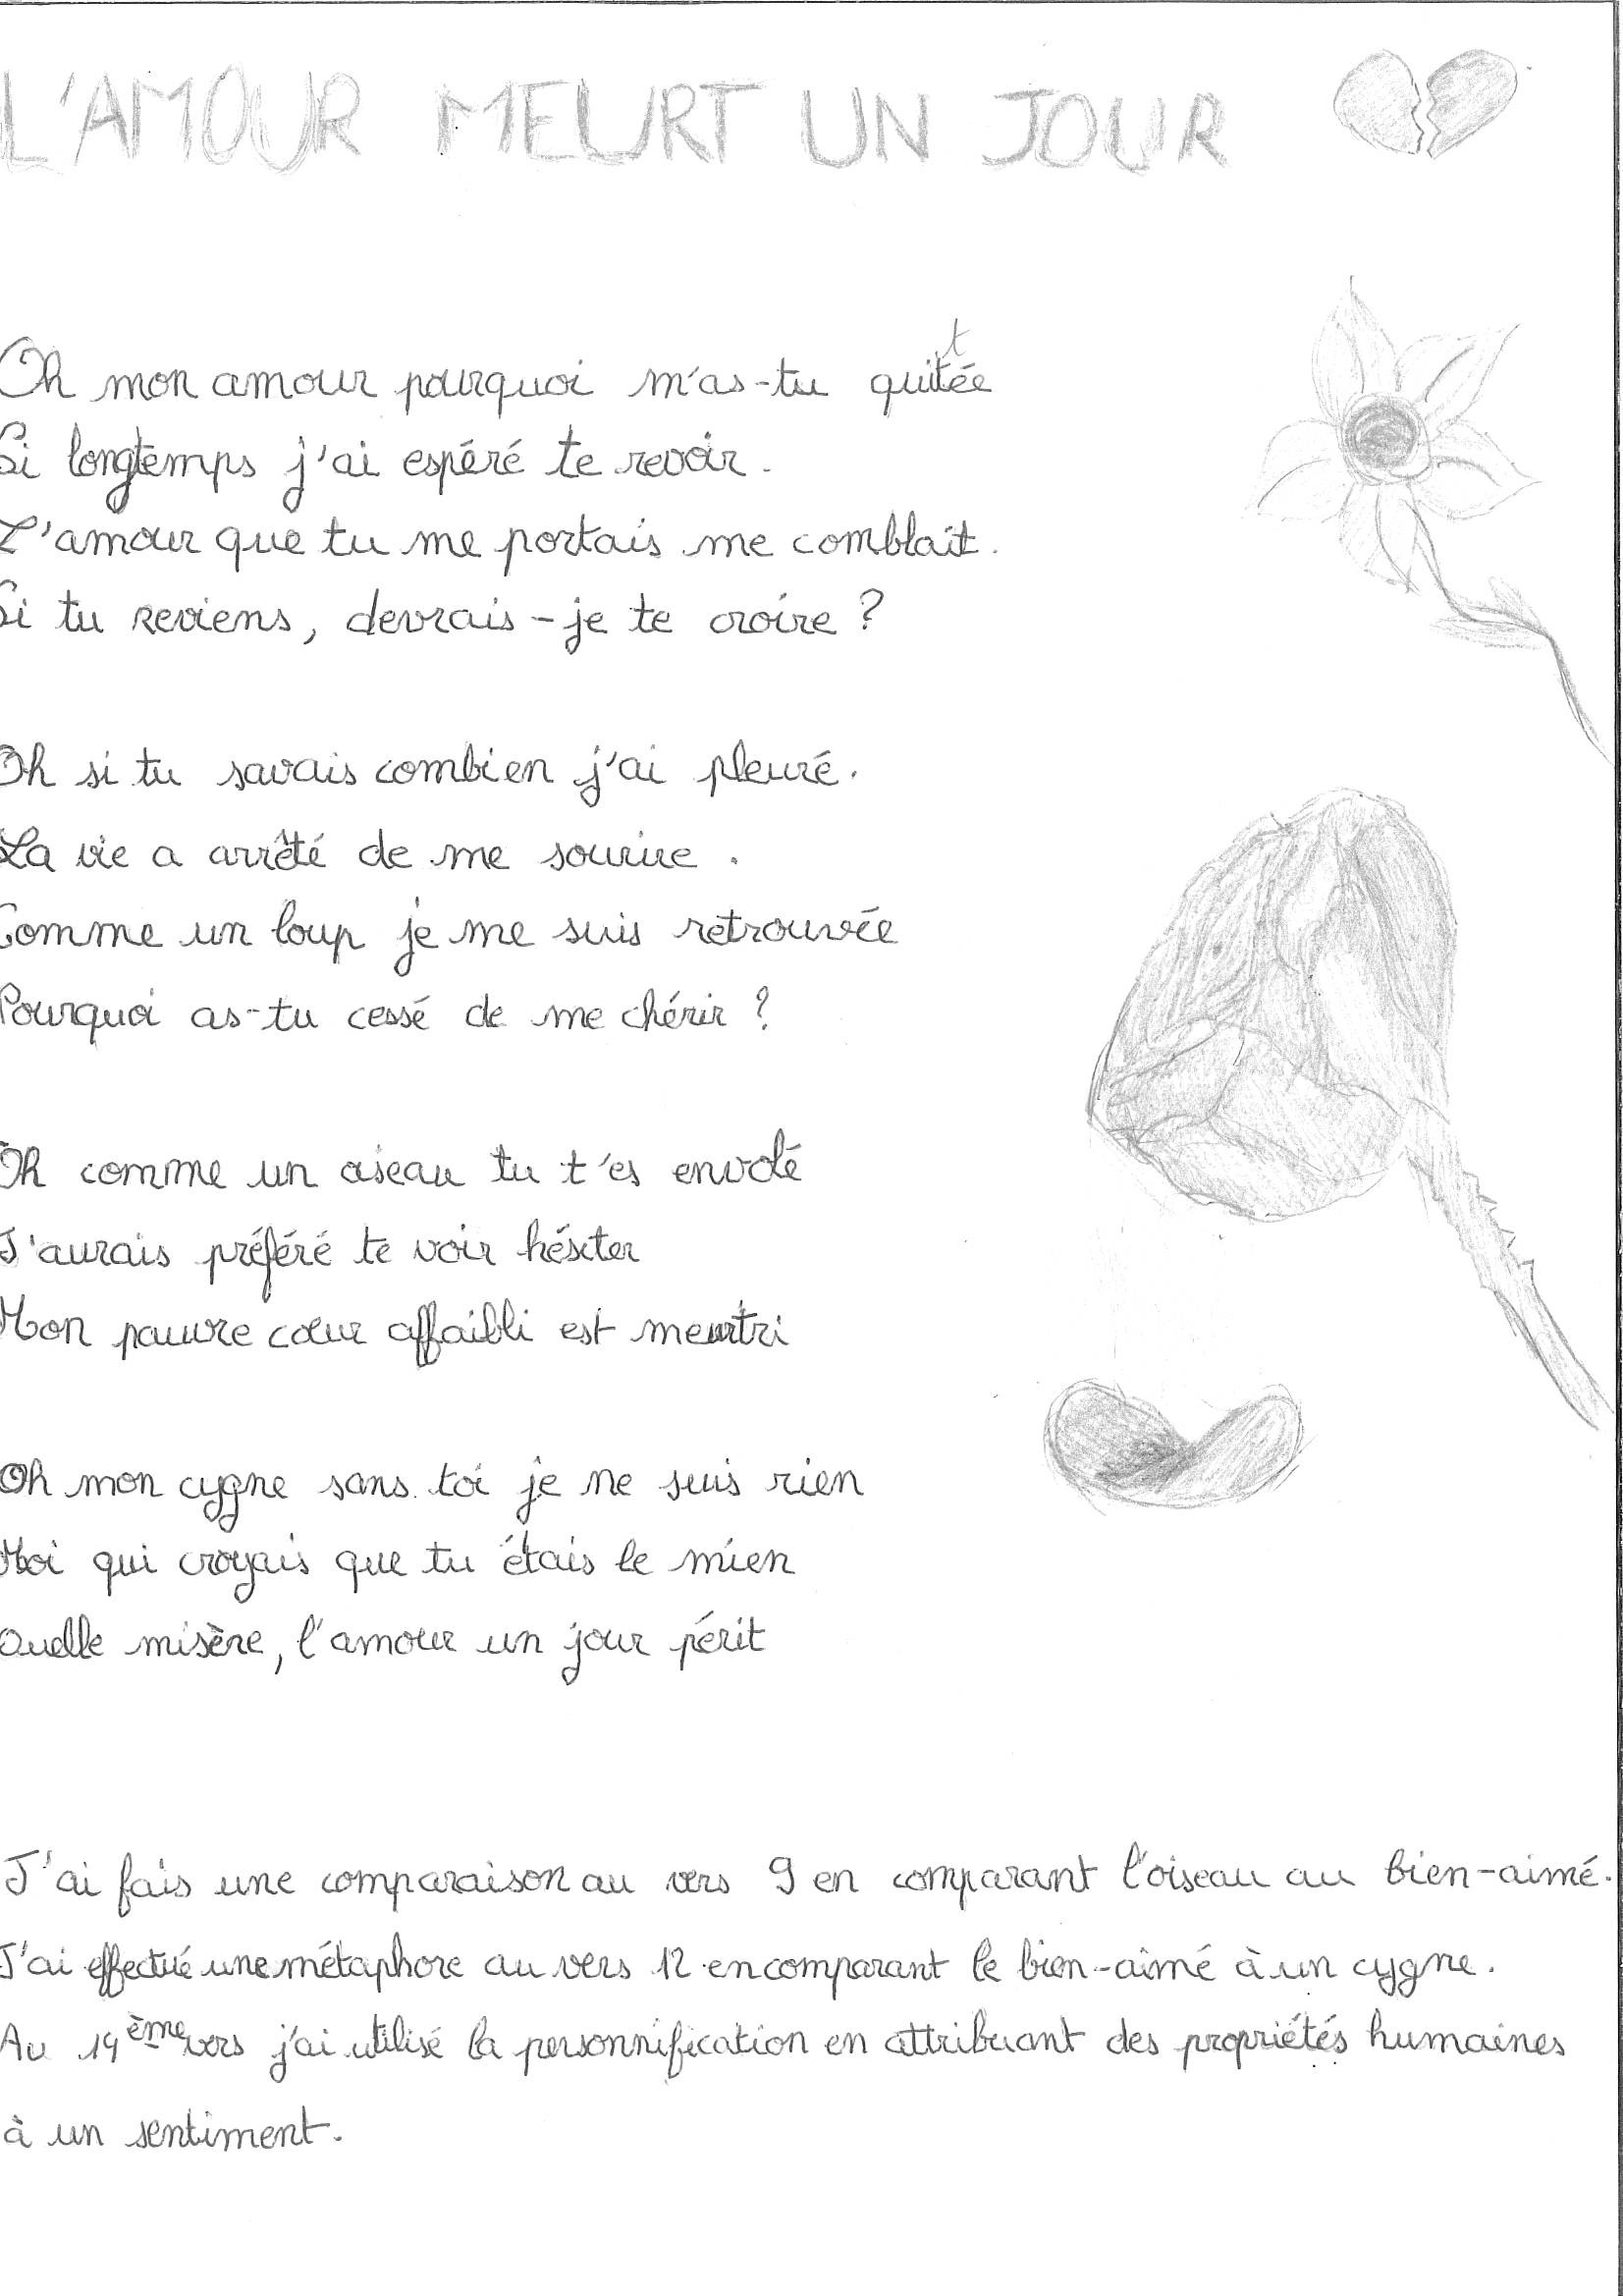 L'AMOUR MEURT UN JOUR
Oh mon amour pourquoi m'as-tu quittée
Si longtemps j'ai espéré te revoir.
L'amour que tu me portais me comblait.
Si tu reviens, devrais-je te croire ?
Oh si tu savais combien j'ai pleuré.
La vie a arrêté de me sourire.
Comme un loup je me suis retrouvée
Pourquoi as-tu cessé de me chérir ?
Oh comme un oiseau tu t'es envolé
J'aurais préféré te voir hésiter
Mon pauvre cœur affaibli est meurtri
Oh mon cygne sans toi je ne suis rien
Moi qui croyais que tu étais le mien
Quelle misère, l'amour un jour périt
J'ai fais une comparaison au vers 9 en comparant l'oiseau au bien-aimé.
J'ai effectué une métaphore au vers 12 en comparant le bien-aimé à un cygne.
Au 14ème vers j'ai utilisé la personnification en attribuant des propriétés humaines
à un sentiment.